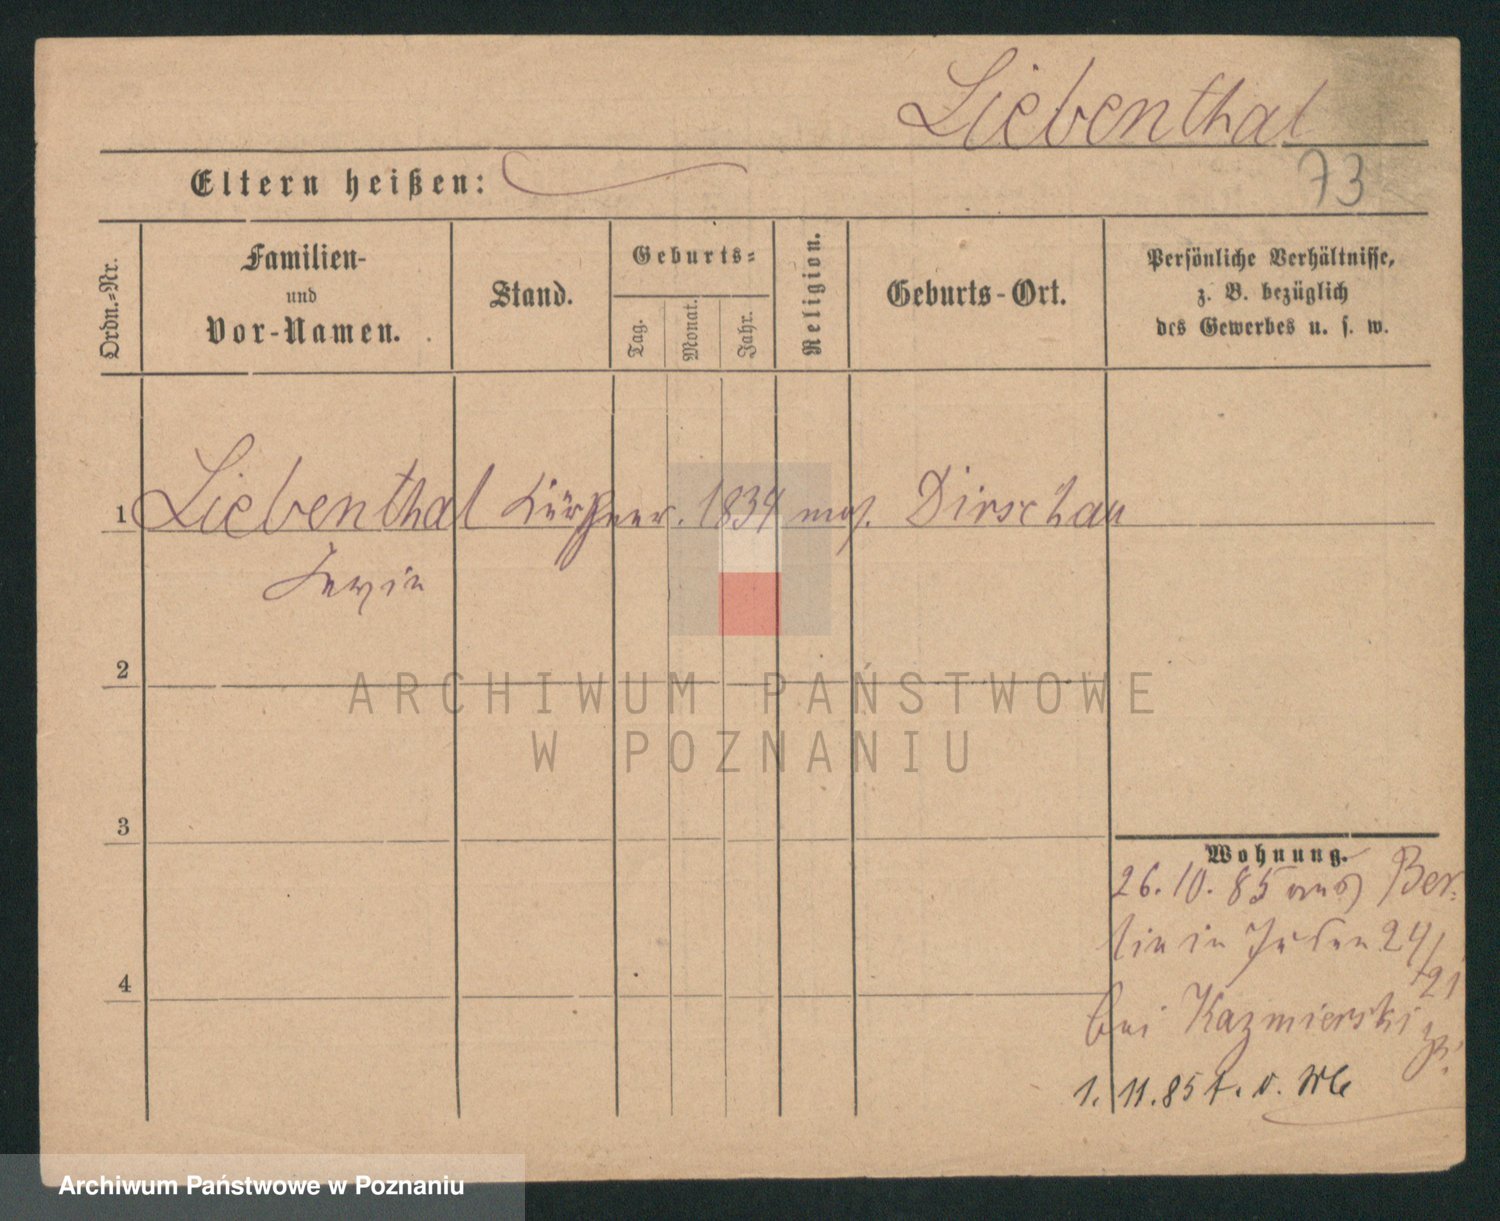 Liebenthal
Eltern heißen:
73
Ordn.=Nr.
Familien-
und
Vor-Namen.
Stand.
Geburts=
Tag.
Monat.
Jahr.
Religion.
Geburts-Ort.
Persönliche Verhältnisse,
z. B. bezüglich
des Gewerbes u. s. w.
1 Liebenthal Kürschner. 1834 mos. Dirschau
2
3
4
Wohnung.
26. 10. 85 aus Ber-
lin in Juden 24/
21
bei Kazmierski
1. 11. 85
ARCHIWUM PAŃSTWOWE
W POZNANIU
Archiwum Państwowe w Poznaniu